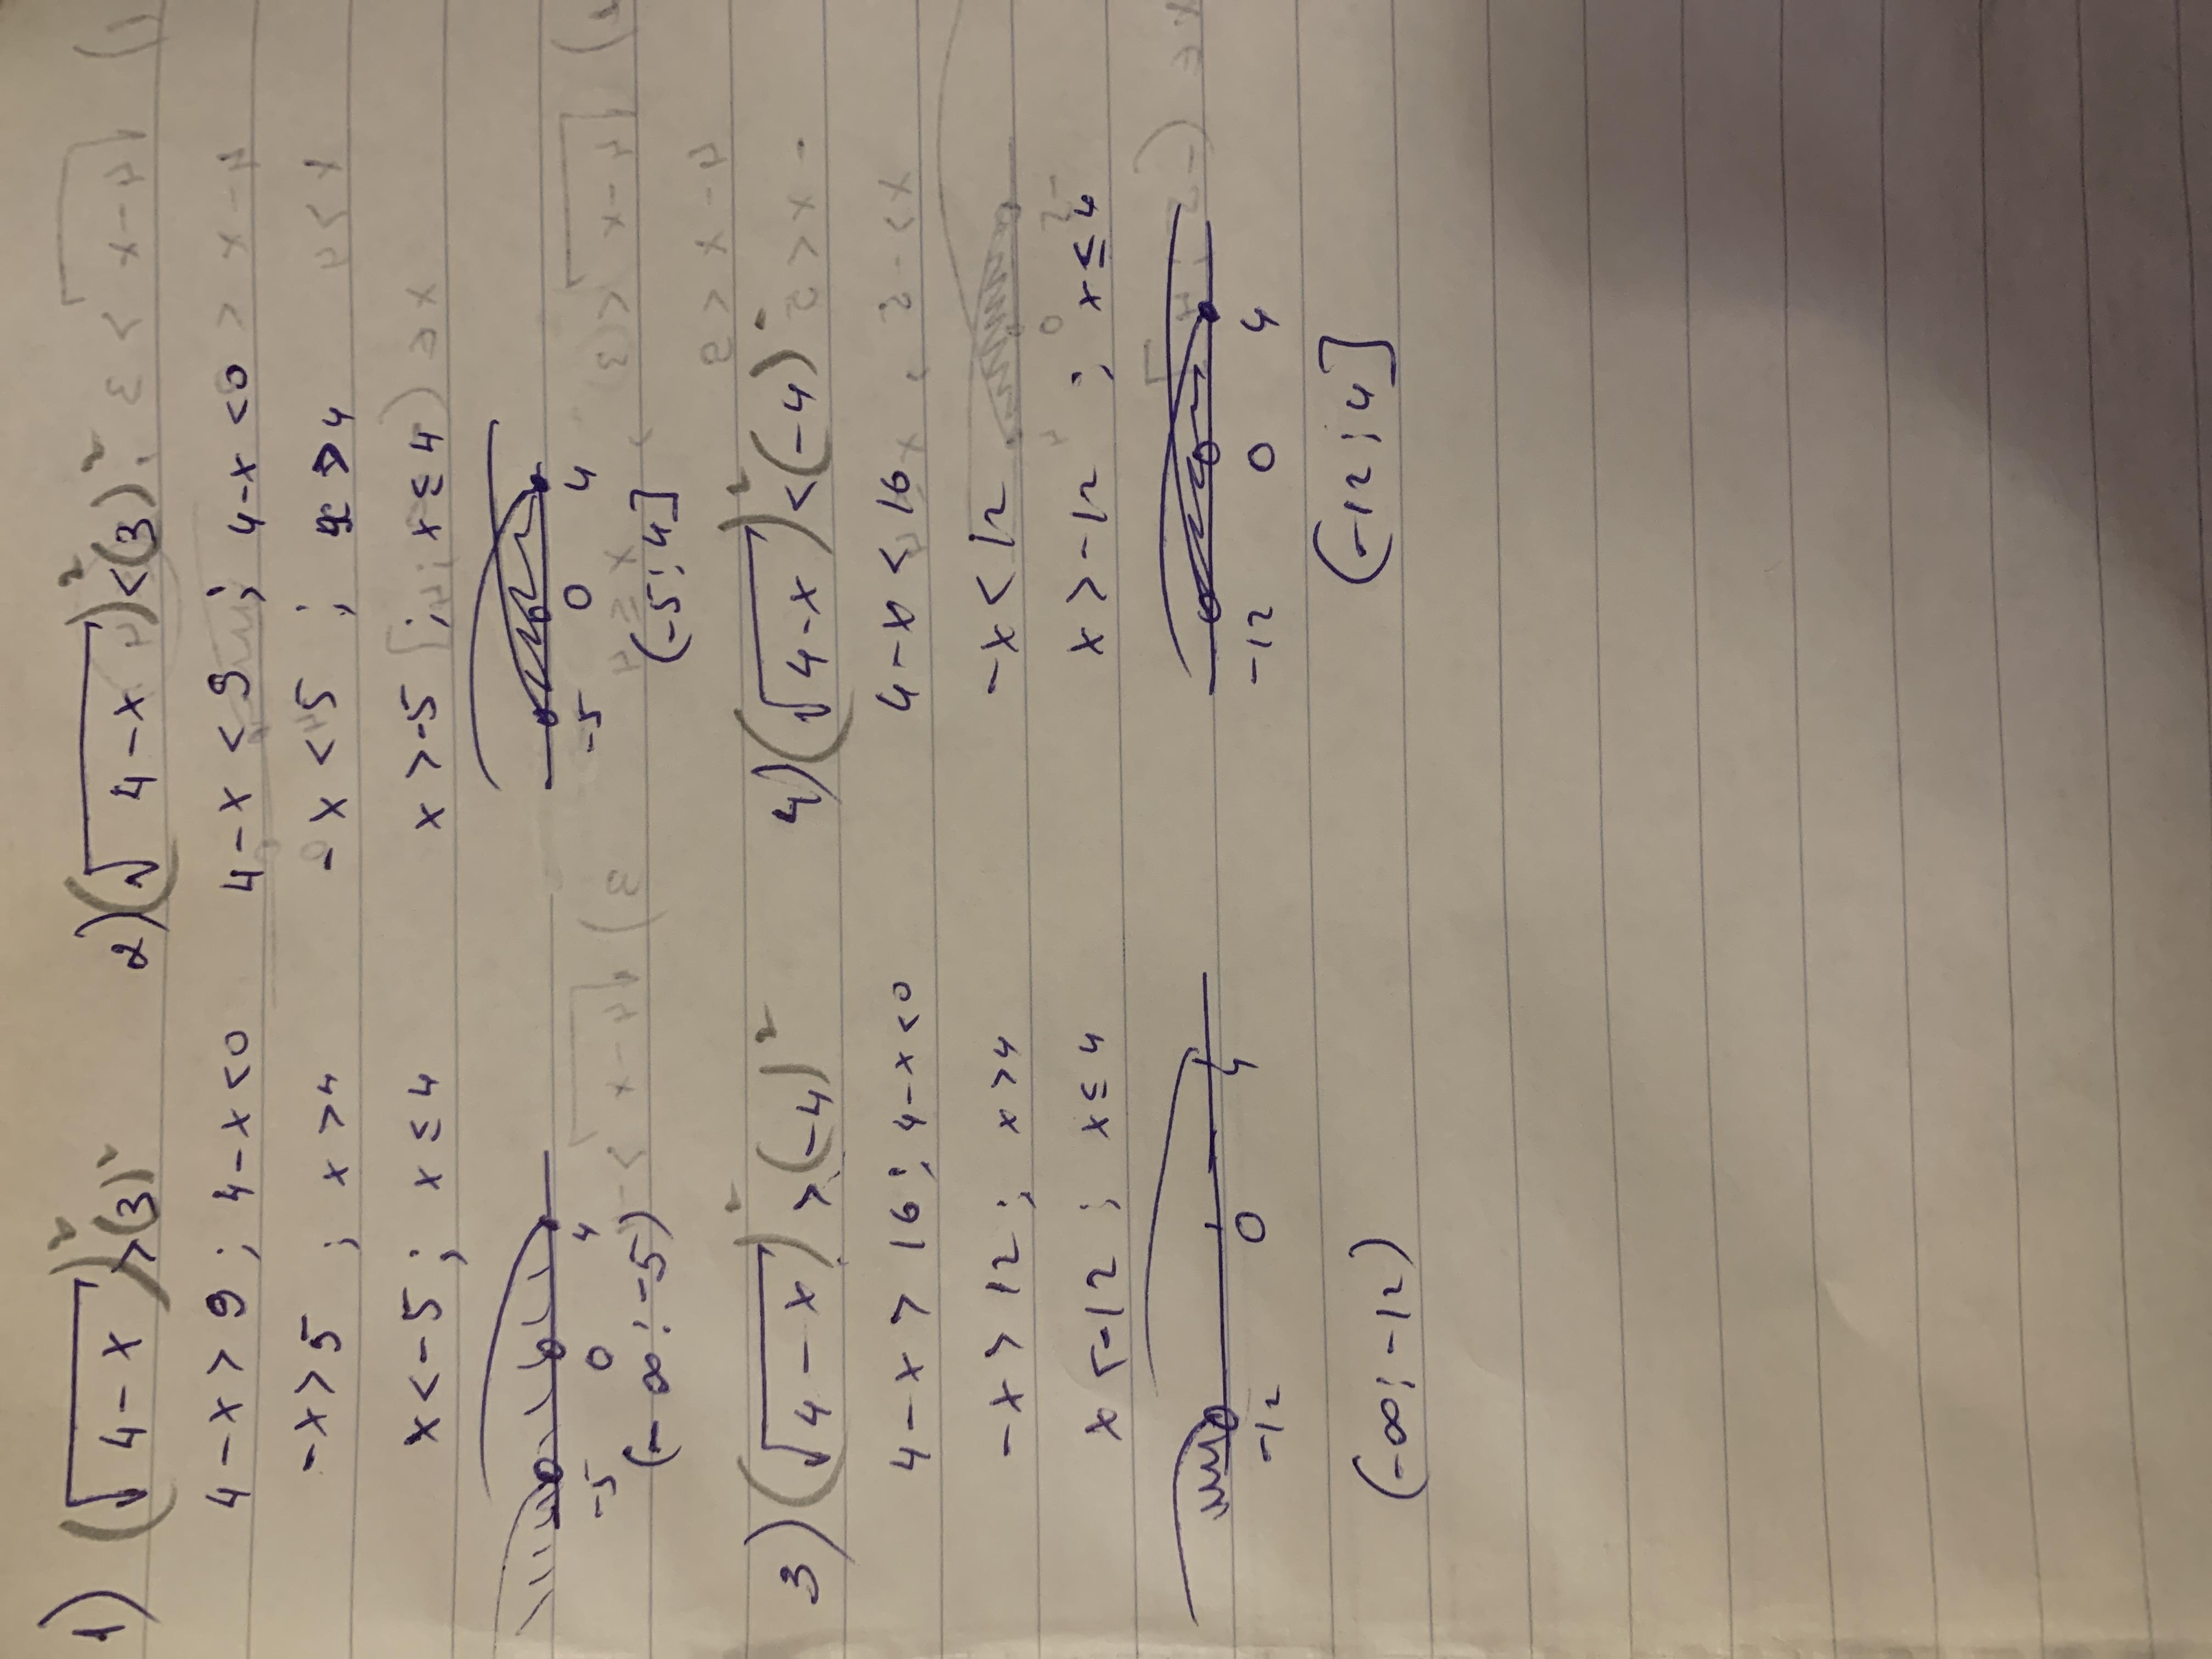 1) (√4-x)² > (3)²
4-x > 9 ; 4-x < 0
-x > 5 ; x > 4
x < -5 ; x ≤ 4
-5 0 4
(-∞; -5)
2) (√4-x)² < (3)²
4-x < 9 ; 4-x < 0
-x < 5 ; x > 4
x > -5 ; x ≤ 4
-5 0 4
(-5; 4]
3) (√4-x)² > (-4)²
4-x > 16 ; 4-x < 0
-x > 12 ; x > 4
x < -12 ; x ≤ 4
-12 0 4
(-∞; -12)
4) (√4-x)² < (-4)²
4-x < 16
-x < 12
x > -12 ; x ≤ 4
-12 0 4
(-12; 4]